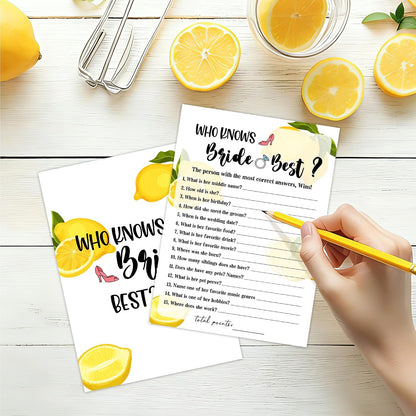 WHO KNOWS
Bride Best ?
The person with the most correct answers, Wins!
1. What is her middle name?
2. How old is she?
3. When is her birthday?
4. How did she meet the groom?
5. When is the wedding date?
6. What is her favorite food?
7. What is her favorite drink?
8. What is her favorite movie?
9. Where was she born?
10. How many siblings does she have?
11. Does she have any pets? Names?
12. What is her pet peeve?
13. Name one of her favorite music genres
14. What is one of her hobbies?
15. Where does she work?
total points:
WHO KNOWS
Bri
BEST?